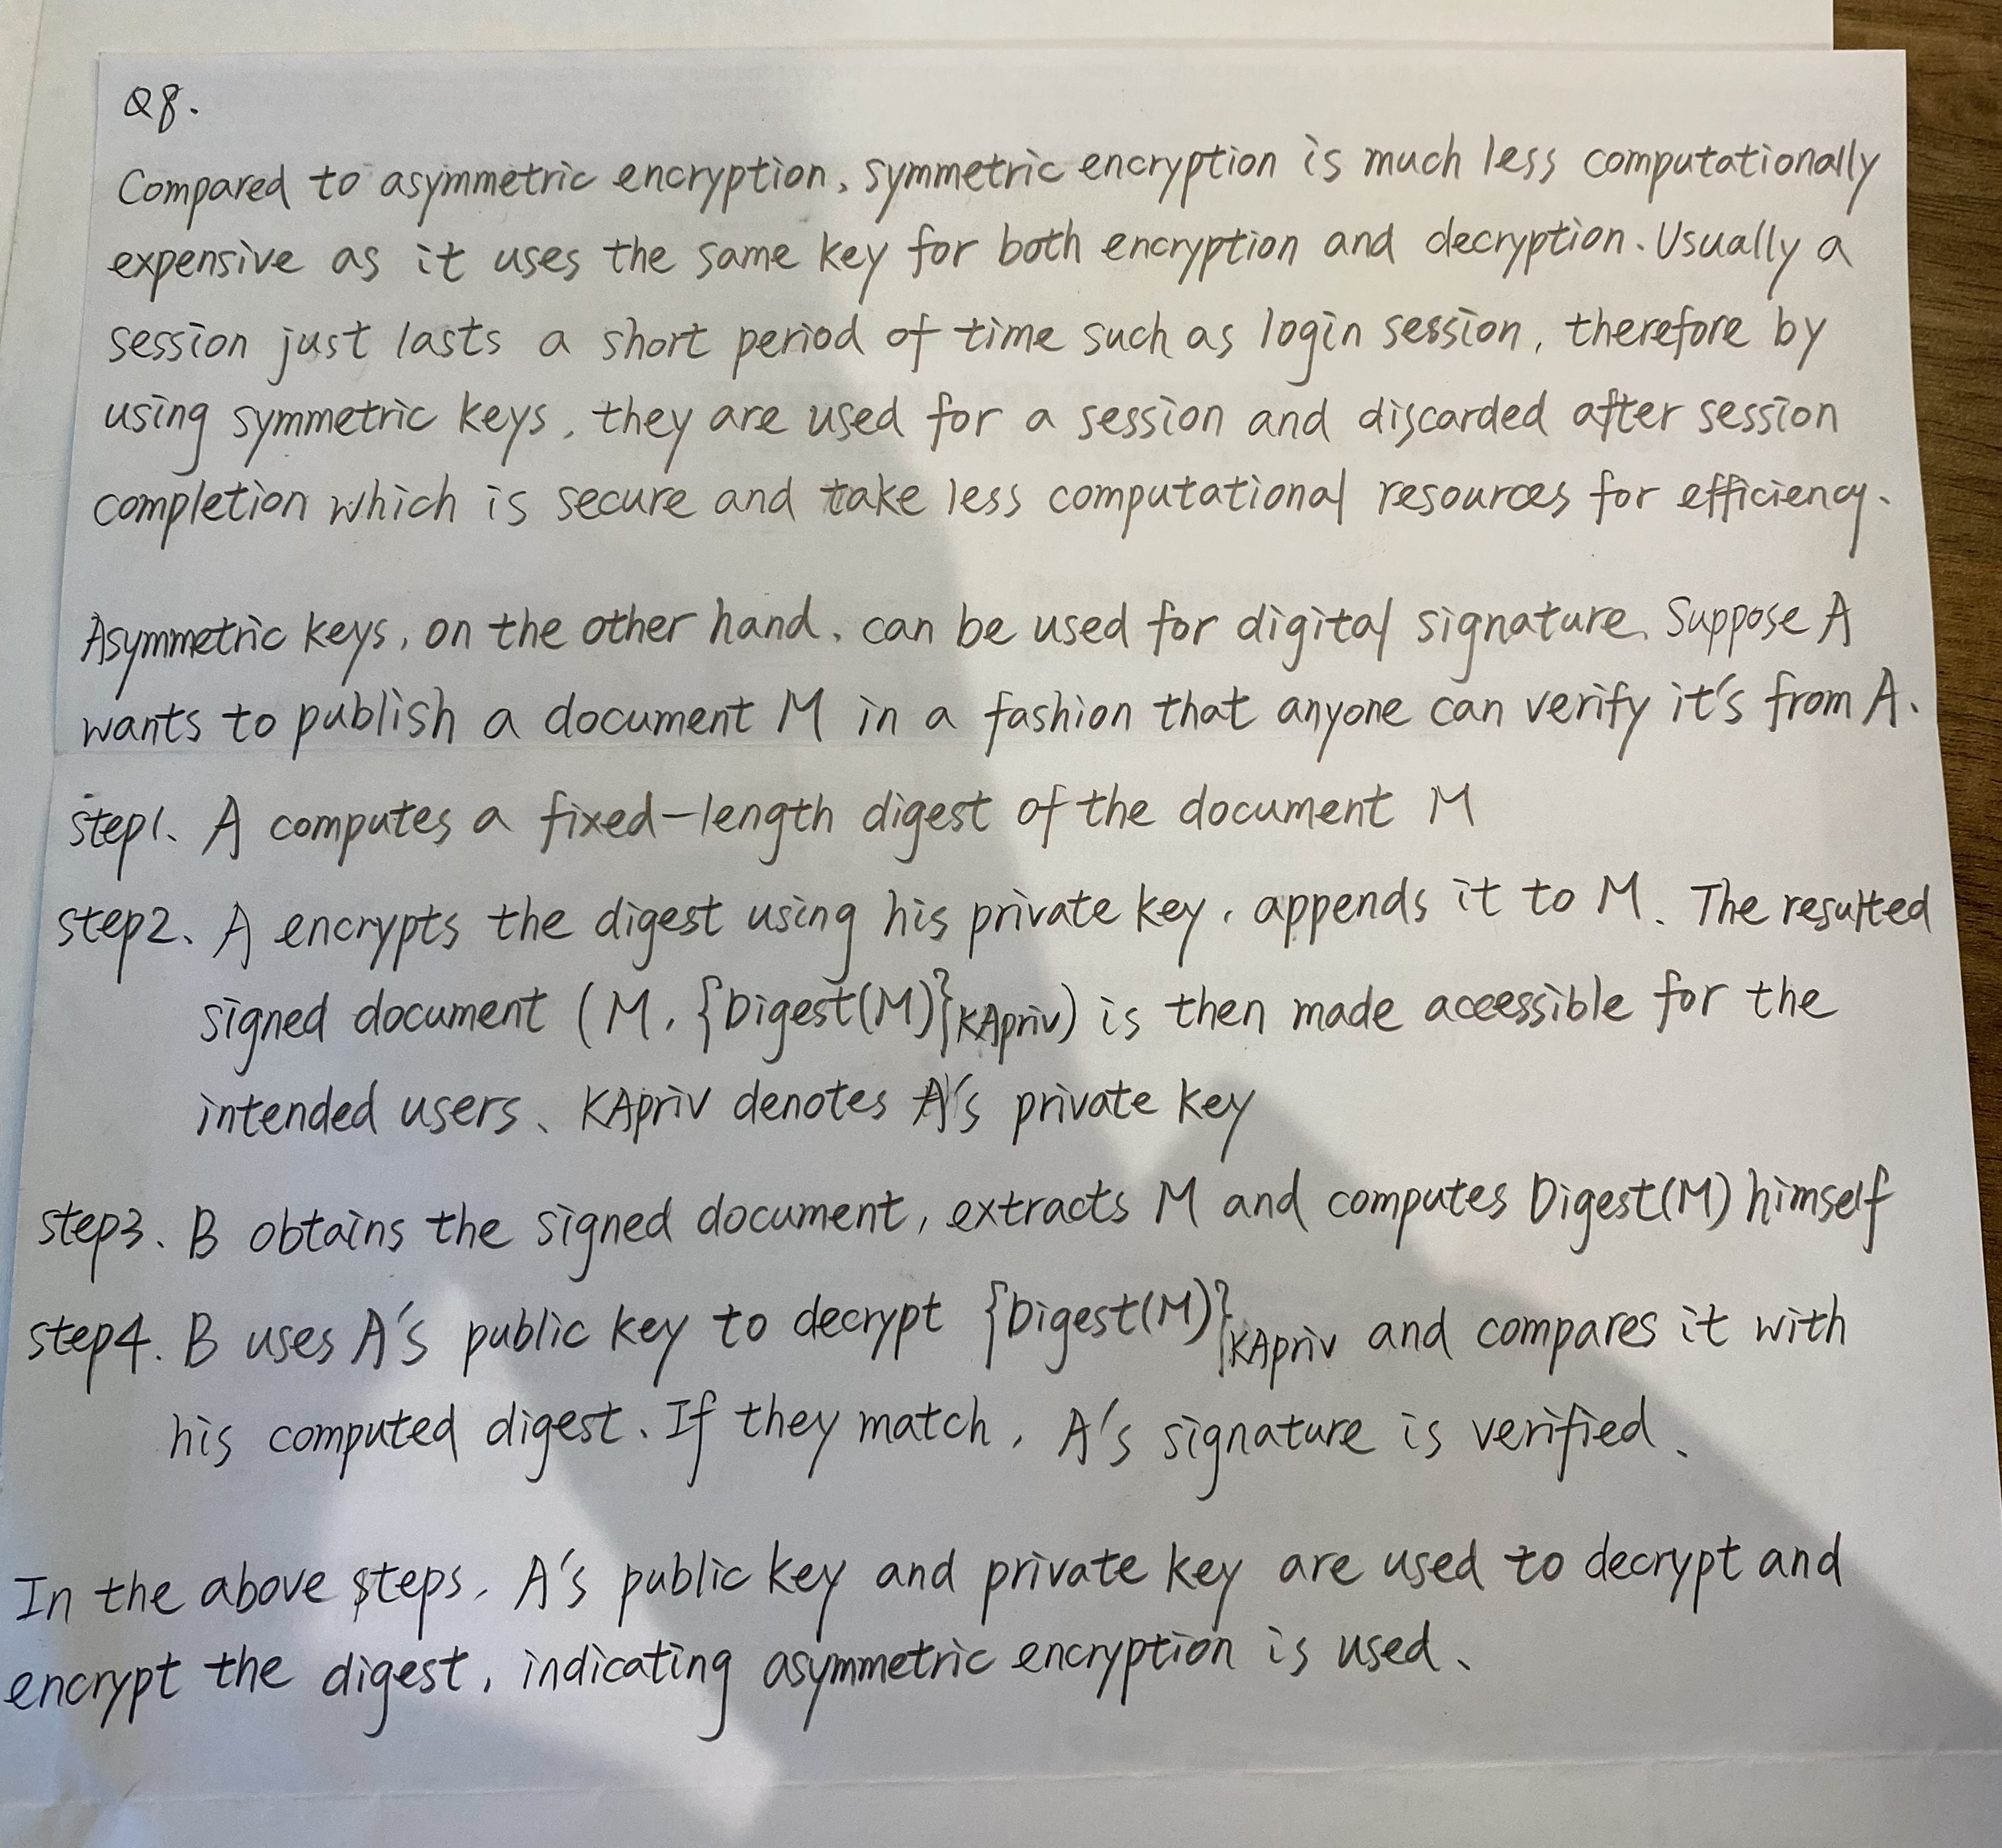 Q8.
Compared to asymmetric encryption, symmetric encryption is much less computationally
expensive as it uses the same key for both encryption and decryption. Usually a
session just lasts a short period of time such as login session, therefore by
using symmetric keys, they are used for a session and discarded after session
completion which is secure and take less computational resources for efficiency.
Asymmetric keys, on the other hand, can be used for digital signature. Suppose A
wants to publish a document M in a fashion that anyone can verify it's from A.
step1. A computes a fixed-length digest of the document M
step2. A encrypts the digest using his private key, appends it to M. The resulted
signed document (M, {Digest(M)}KApriv) is then made accessible for the
intended users. KApriv denotes A's private key
step3. B obtains the signed document, extracts M and computes Digest(M) himself
step4. B uses A's public key to decrypt {Digest(M)}KApriv and compares it with
his computed digest. If they match, A's signature is verified.
In the above steps, A's public key and private key are used to decrypt and
encrypt the digest, indicating asymmetric encryption is used.